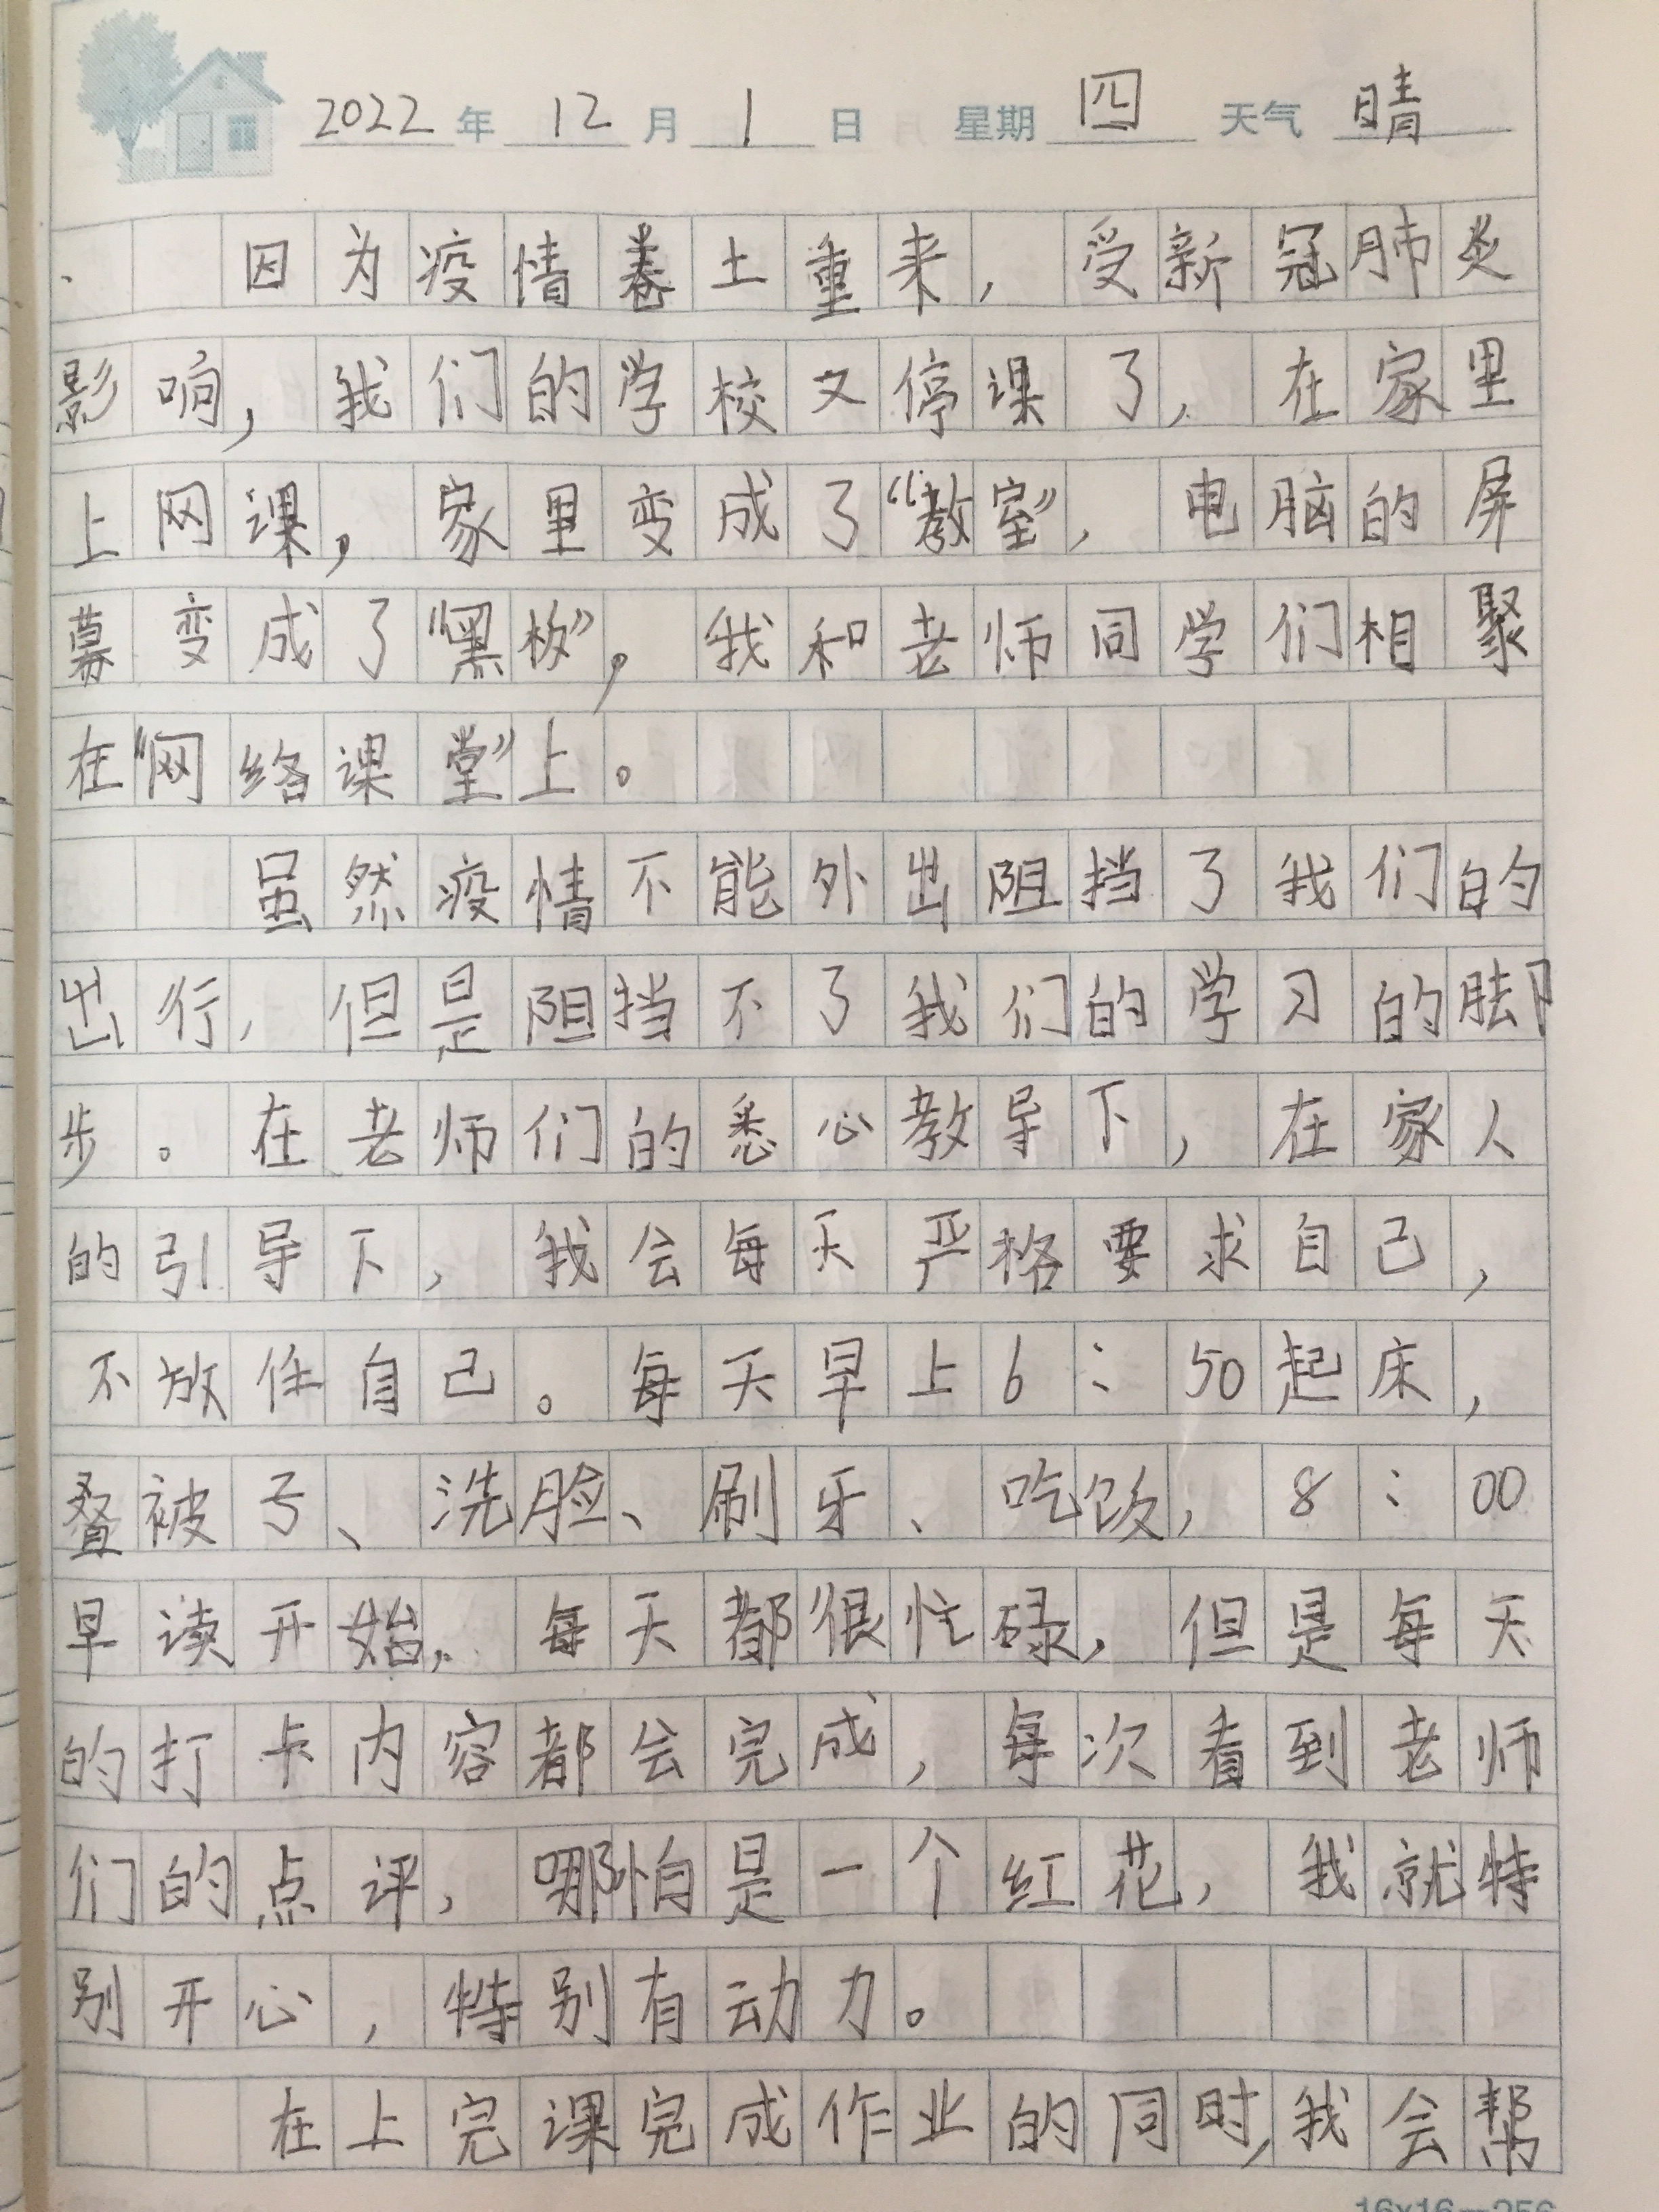 2022年12月1日 星期四 天气晴
因为疫情卷土重来,受新冠肺炎
影响,我们的学校又停课了,在家里
上网课,家里变成了“教室”,电脑的屏
幕变成了“黑板”,我和老师同学们相聚
在“网络课堂”上。
虽然疫情不能外出阻挡了我们的
出行,但是阻挡不了我们的学习的脚
步。在老师们的悉心教导下,在家人
的引导下,我会每天严格要求自己,
不放任自己。每天早上6:50起床,
叠被子、洗脸、刷牙、吃饭,8:00
早读开始,每天都很忙碌,但是每天
的打卡内容都会完成,每次看到老师
们的点评,哪怕是一个红花,我就特
别开心,特别有动力。
在上完课完成作业的同时,我会帮
16×16=256